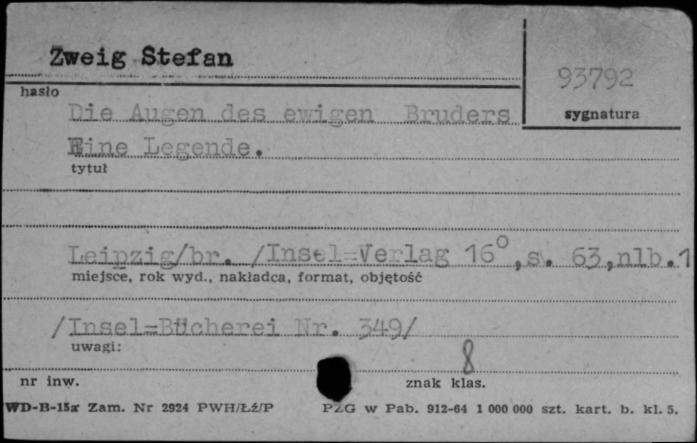 Zweig Stefan
93792
hasło
sygnatura
Die Augen des ewigen Bruders
Eine Legende.
tytuł
Leipzig/br. /Insel=Verlag 16°,s. 63,nlb.1
miejsce, rok wyd., nakładca, format, objętość
/Insel=Bücherei Nr. 349/
uwagi:
8
nr inw.
znak klas.
WD-B-15a Zam. Nr 2924 PWH/Łź/P PZG w Pab. 912-64 1 000 000 szt. kart. b. kl. 5.